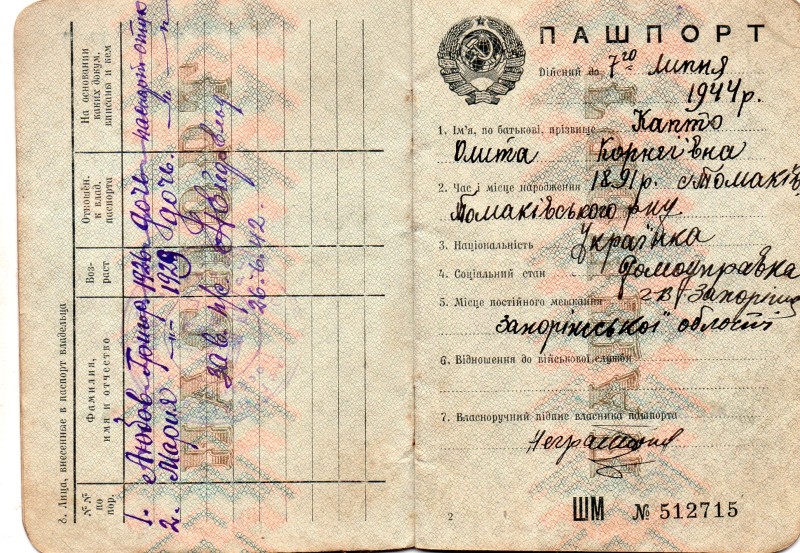 8. Лица, внесенные в паспорт владельца
№№ по пор.
Фамилия, имя и отчество
Возраст
Отношен. к влад. паспорта
На основании каких докум. вписаны и кем
1. Любов Григор. 1926 дочь паспорт
2. Мария —"— 1929 дочь. —"—
Зав. п/с
26.6.42.
ПАСПОРТ
ПАШПОРТ
Дійсний до 7го липня
1944р.
1. Ім'я, по батькові, прізвище Капто
Олита Корнеївна
2. Час і місце народження 1891р. с Томаків
Томаківського рну
3. Національність Українка
4. Соціяльний стан Домоуправка
5. Місце постійного мешкання Запоріжжя
Запоріжської області
6. Відношення до військової служби
7. Власноручний підпис власника пашпорта
Неграмотна
2
ШМ № 512715